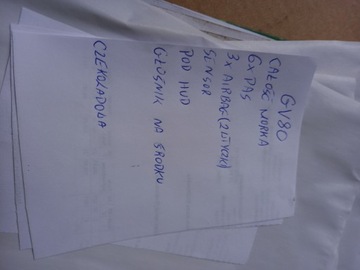 GV80
CAŁOŚĆ NORKA
6x PAS
3x AIRBAG (2 WTYCZKI)
SENSOR
POD HUD
GŁOŚNIK NA ŚRODKU
CZEKOLADOWA